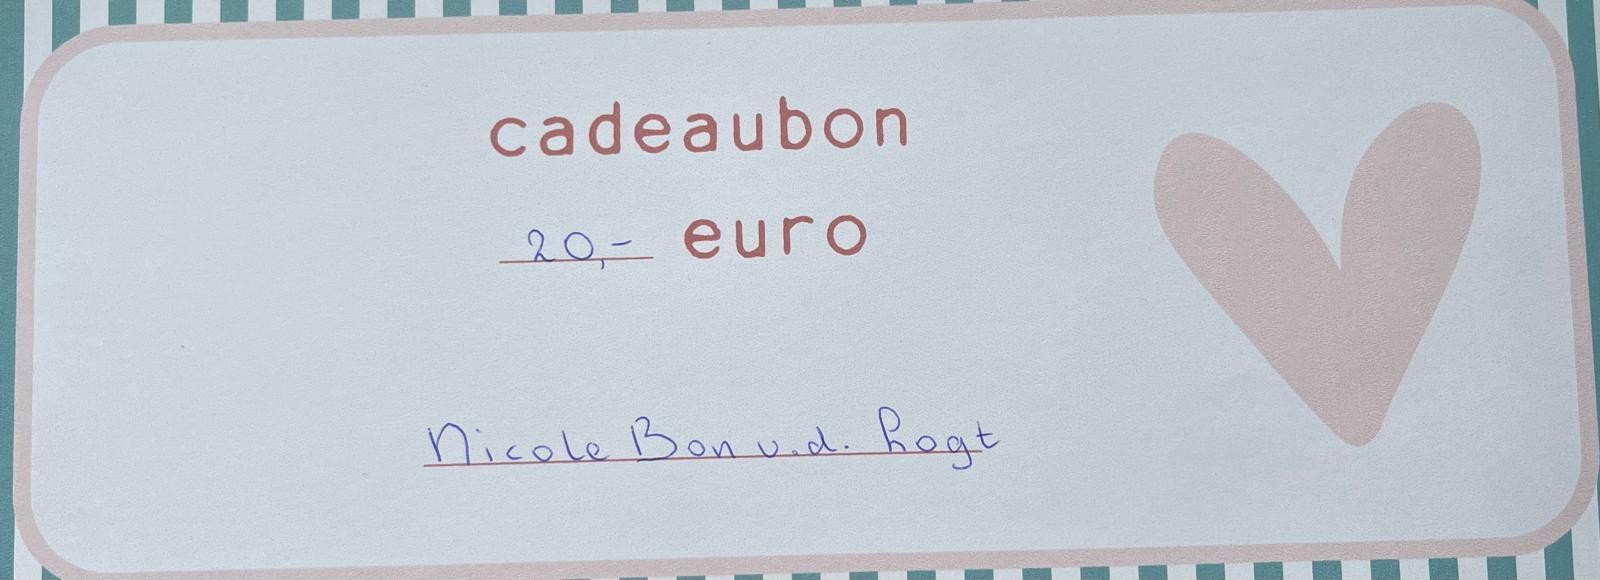 cadeaubon
20,- euro
Nicole Bon v.d. Logt